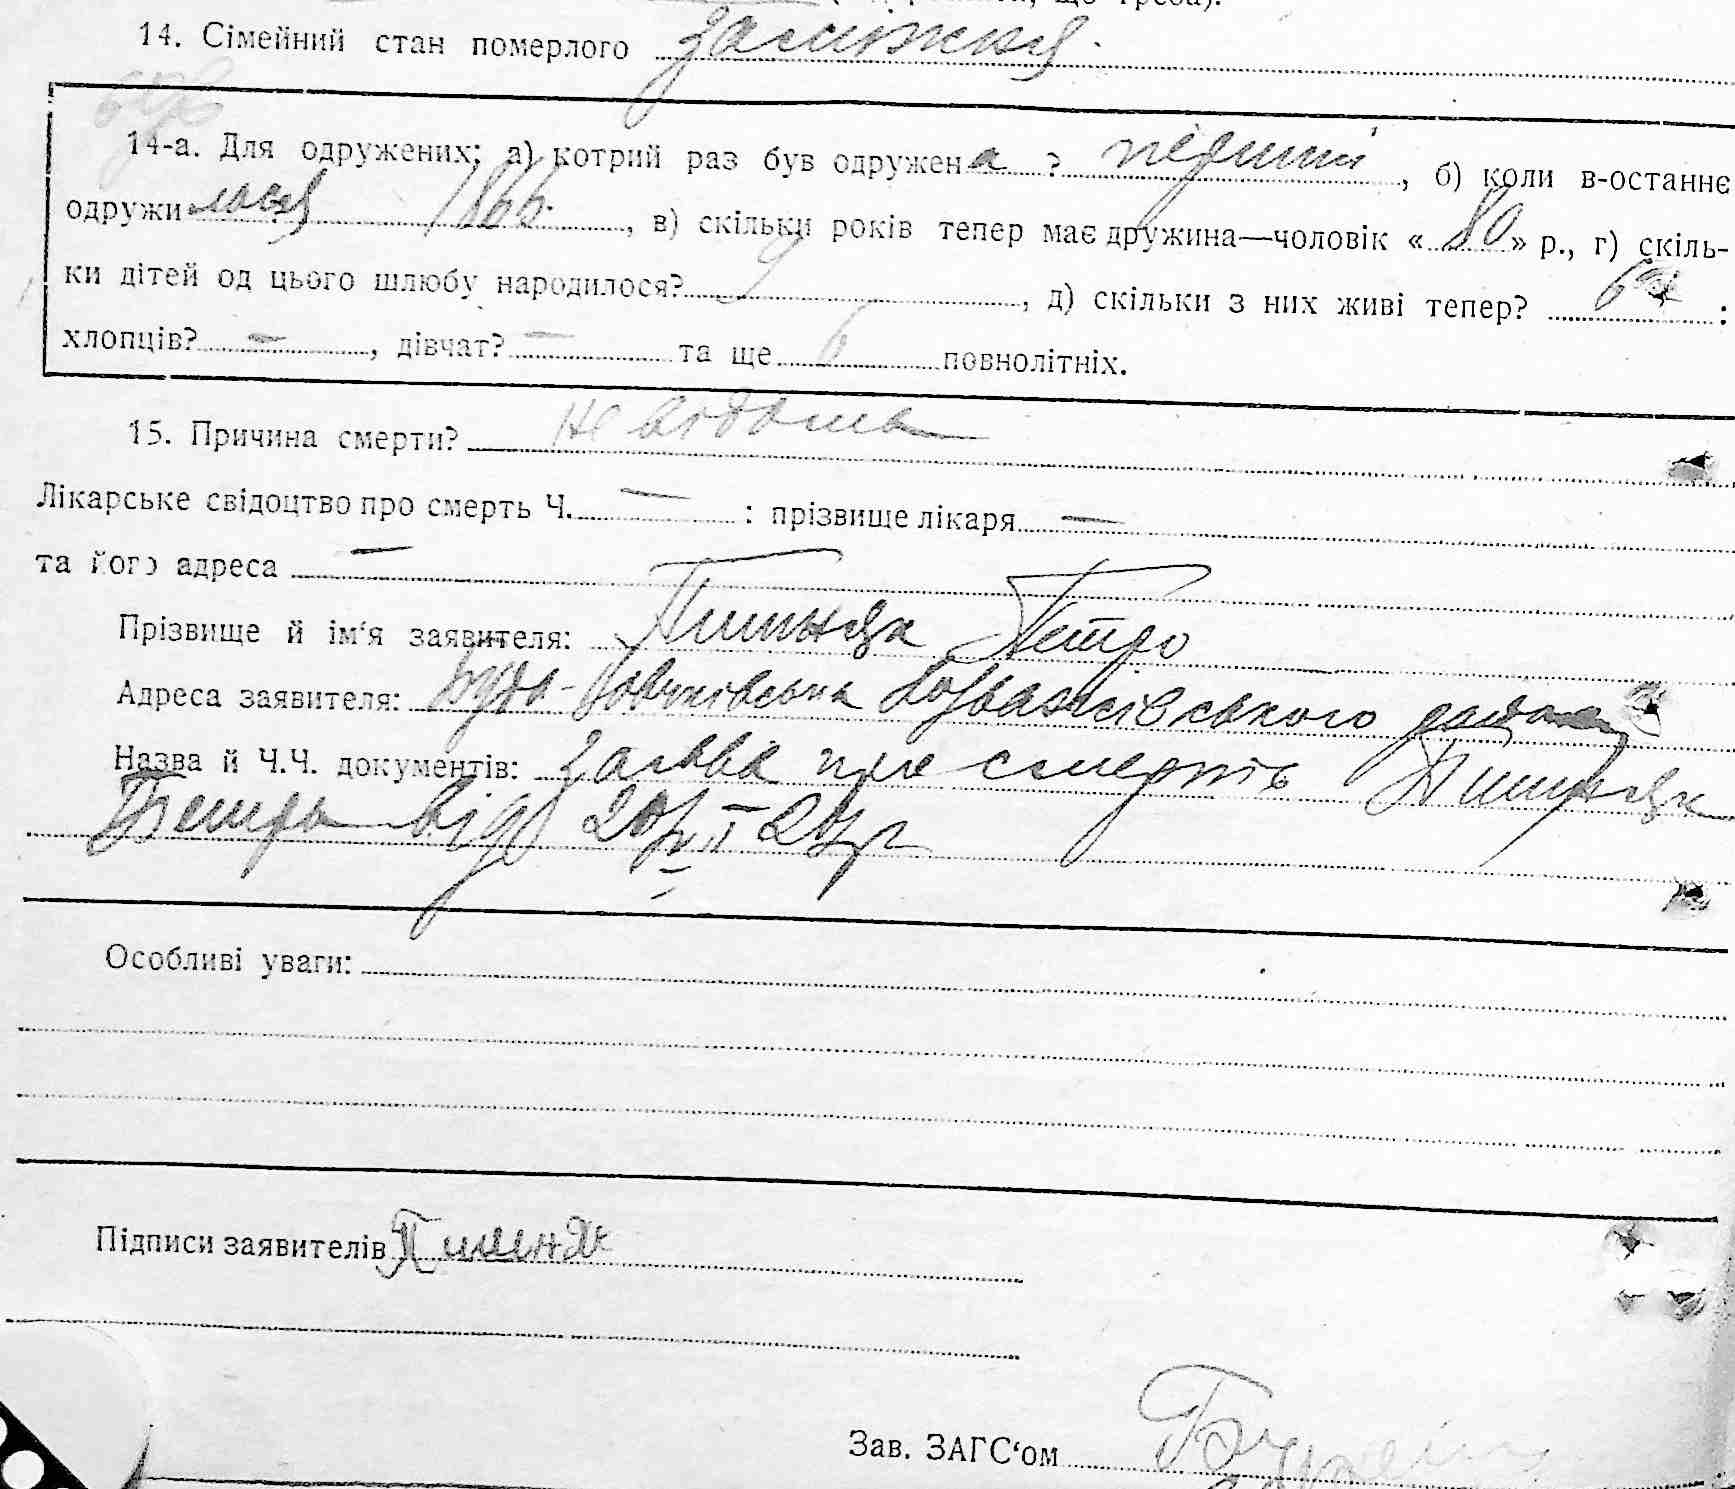 14. Сімейний стан померлого заміжня.
14-а. Для одружених: а) котрий раз був одружена? перший, б) коли в-останнє
одружилася 1866, в) скільки років тепер має дружина—чоловік «80» р., г) скіль-
ки дітей од цього шлюбу народилося? 9, д) скільки з них живі тепер? 6:
хлопців? —, дівчат? — та ще 6 повнолітніх.
15. Причина смерти? не відома
Лікарське свідоцтво про смерть Ч. — : прізвище лікаря —
та його адреса —
Прізвище й ім‘я заявителя: Петро
Адреса заявителя: Буда-Вовчківська району
Назва й Ч.Ч. документів: заява про смерть
Петра від
Особливі уваги:
Підписи заявителів
Зав. ЗАГС‘ом